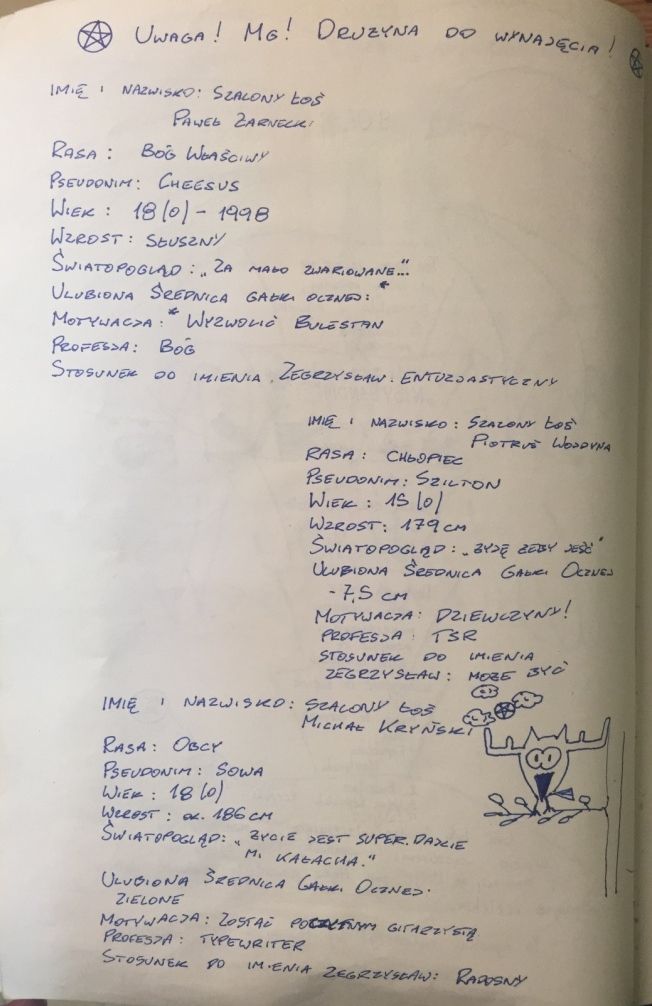 UWAGA! MG! DRUŻYNA DO WYNAJĘCIA!
IMIĘ I NAZWISKO: SZALONY ŁOŚ
PAWEŁ ŻARNECKI
RASA: BÓG WŁAŚCIWY
PSEUDONIM: CHEESUS
WIEK: 18 (0) - 1998
WZROST: SŁUSZNY
ŚWIATOPOGLĄD: „ZA MAŁO ZWARIOWANE..."
ULUBIONA ŚREDNICA GAŁKI OCZNEJ: *
MOTYWACJA: * WYZWOLIĆ BULESTAN
PROFESJA: BÓG
STOSUNEK DO IMIENIA ZEGRZYSŁAW: ENTUZJASTYCZNY
IMIĘ I NAZWISKO: SZALONY ŁOŚ
PIOTRUŚ WOJDYNA
RASA: CHŁOPIEC
PSEUDONIM: SZILTON
WIEK: 15 (0)
WZROST: 179 CM
ŚWIATOPOGLĄD: „ŻYJĘ ŻEBY JEŚĆ"
ULUBIONA ŚREDNICA GAŁKI OCZNEJ
- 7,5 CM
MOTYWACJA: DZIEWCZYNY!
PROFESJA: TSR
STOSUNEK DO IMIENIA
ZEGRZYSŁAW: MOŻE BYĆ
IMIĘ I NAZWISKO: SZALONY ŁOŚ
MICHAŁ KRYŃSKI
RASA: OBCY
PSEUDONIM: SOWA
WIEK: 18 (0)
WZROST: OK. 186 CM
ŚWIATOPOGLĄD: „ŻYCIE JEST SUPER. DAJCIE
MI KAŁACHA."
ULUBIONA ŚREDNICA GAŁKI OCZNEJ:
ZIELONE
MOTYWACJA: ZOSTAĆ GITARZYSTĄ
PROFESJA: TYPEWRITER
STOSUNEK DO IMIENIA ZEGRZYSŁAW: RADOSNY